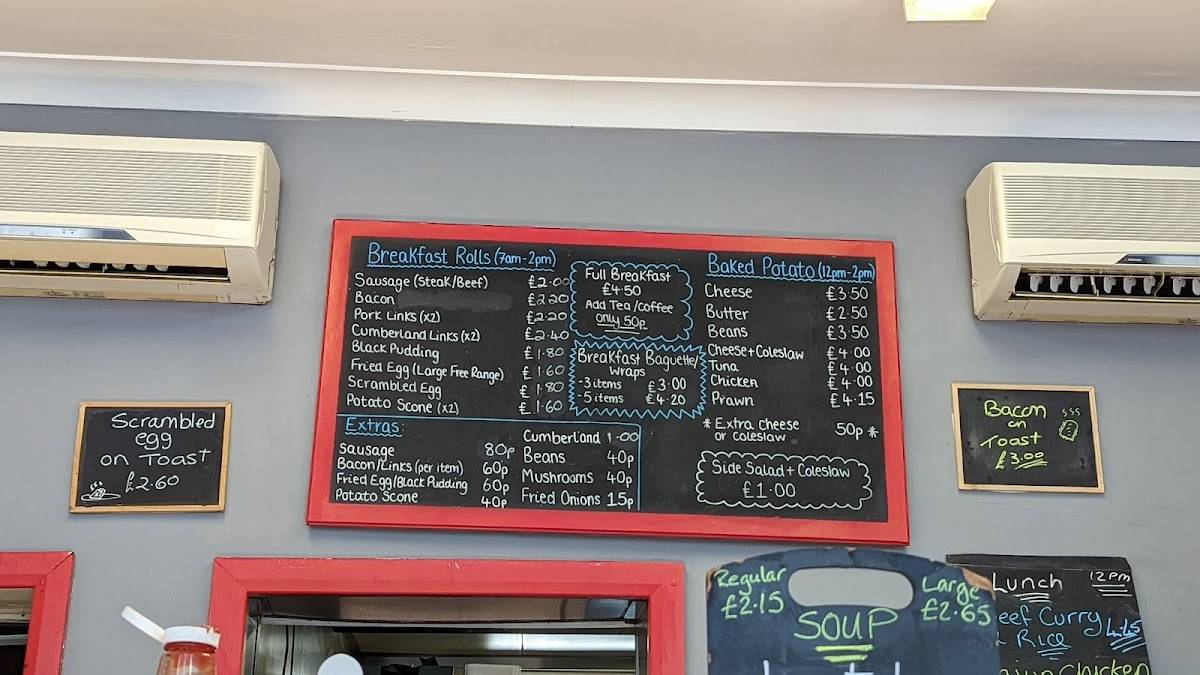 Breakfast Rolls (7am-2pm)
Sausage (Steak/Beef) £2.00
Bacon £2.20
Pork Links (x2) £2.20
Cumberland Links (x2) £2.40
Black Pudding £1.80
Fried Egg (Large Free Range) £1.60
Scrambled Egg £1.80
Potato Scone (x2) £1.60
Full Breakfast
£4.50
Add Tea/Coffee
only 50p
Breakfast Baguette/
Wraps
-3 items £3.00
-5 items £4.20
Extras:
Sausage 80p
Bacon/Links (per item) 60p
Fried Egg/Black Pudding 60p
Potato Scone 40p
Cumberland 1.00
Beans 40p
Mushrooms 40p
Fried Onions 15p
Baked Potato (12pm-2pm)
Cheese £3.50
Butter £2.50
Beans £3.50
Cheese+Coleslaw £4.00
Tuna £4.00
Chicken £4.00
Prawn £4.15
*Extra Cheese
or Coleslaw 50p*
Side Salad+Coleslaw
£1.00
Scrambled
egg
on Toast
£2.60
Bacon
on
Toast
£3.00
Regular
£2.15
Large
£2.65
SOUP
Lunch 12pm
eef Curry
Rice 4.15
Chicken